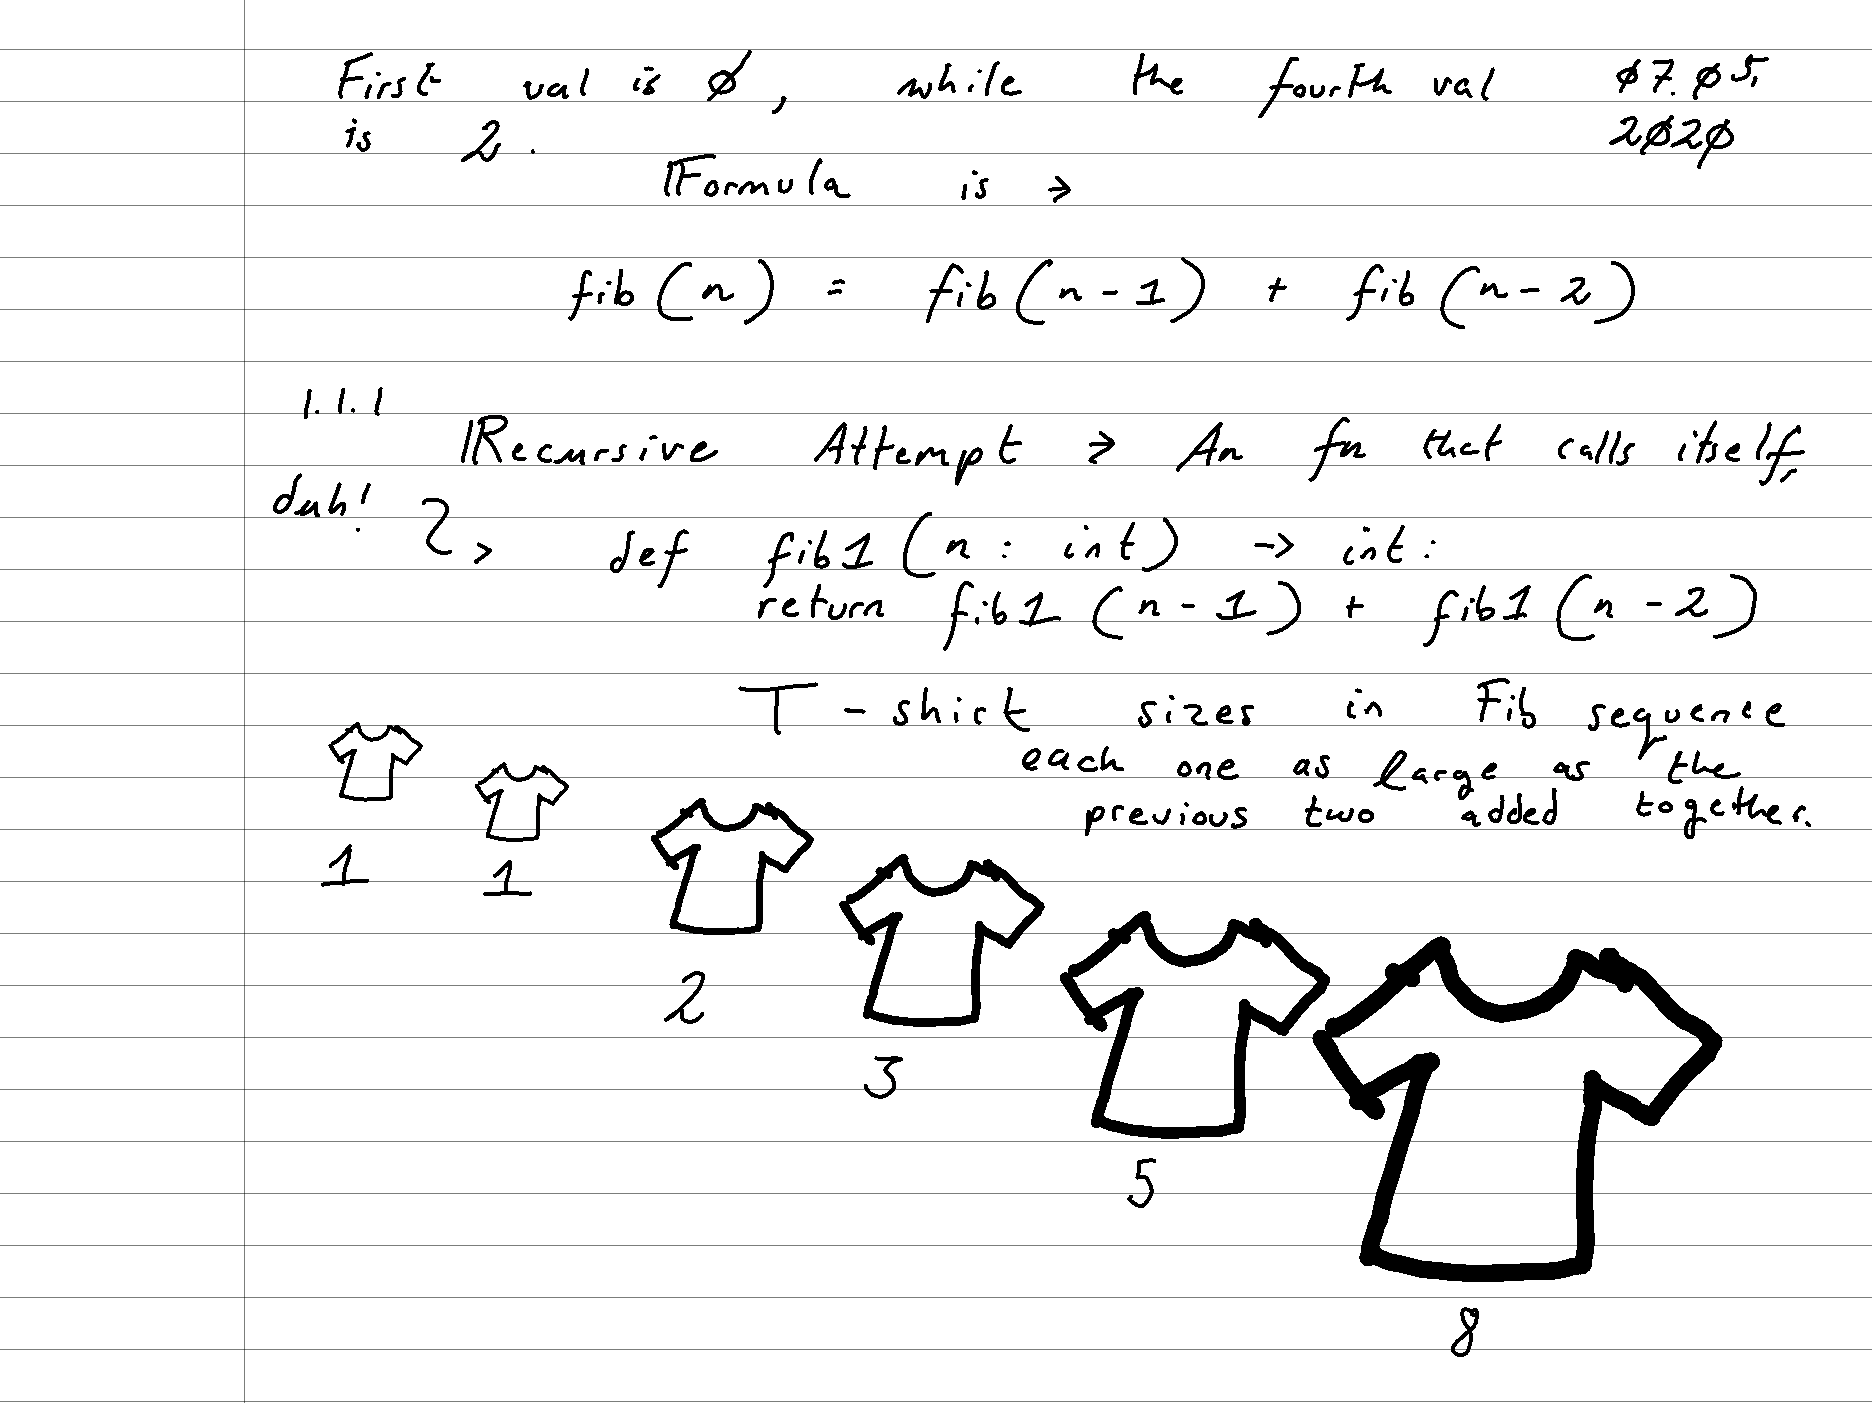 First val is 0, while the fourth val 07.05.
is 2. 2020
Formula is →
fib(n) = fib(n-1) + fib(n-2)
1.1.1
Recursive Attempt → An fn that calls itself,
duh!
→ def fib1(n: int) -> int:
return fib1(n-1) + fib1(n-2)
T-shirt sizes in Fib sequence
each one as large as the
previous two added together.
1
1
2
3
5
8